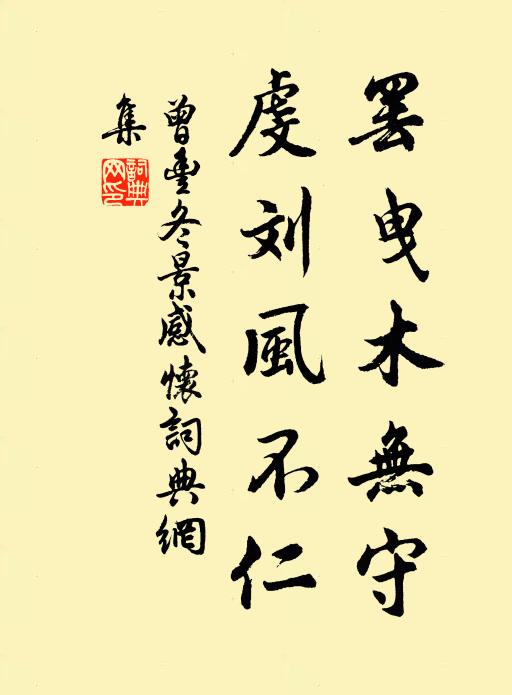 罢曳木無守
虔刘風不仁
曾豐冬景感懷詞典網
集
詞典網印